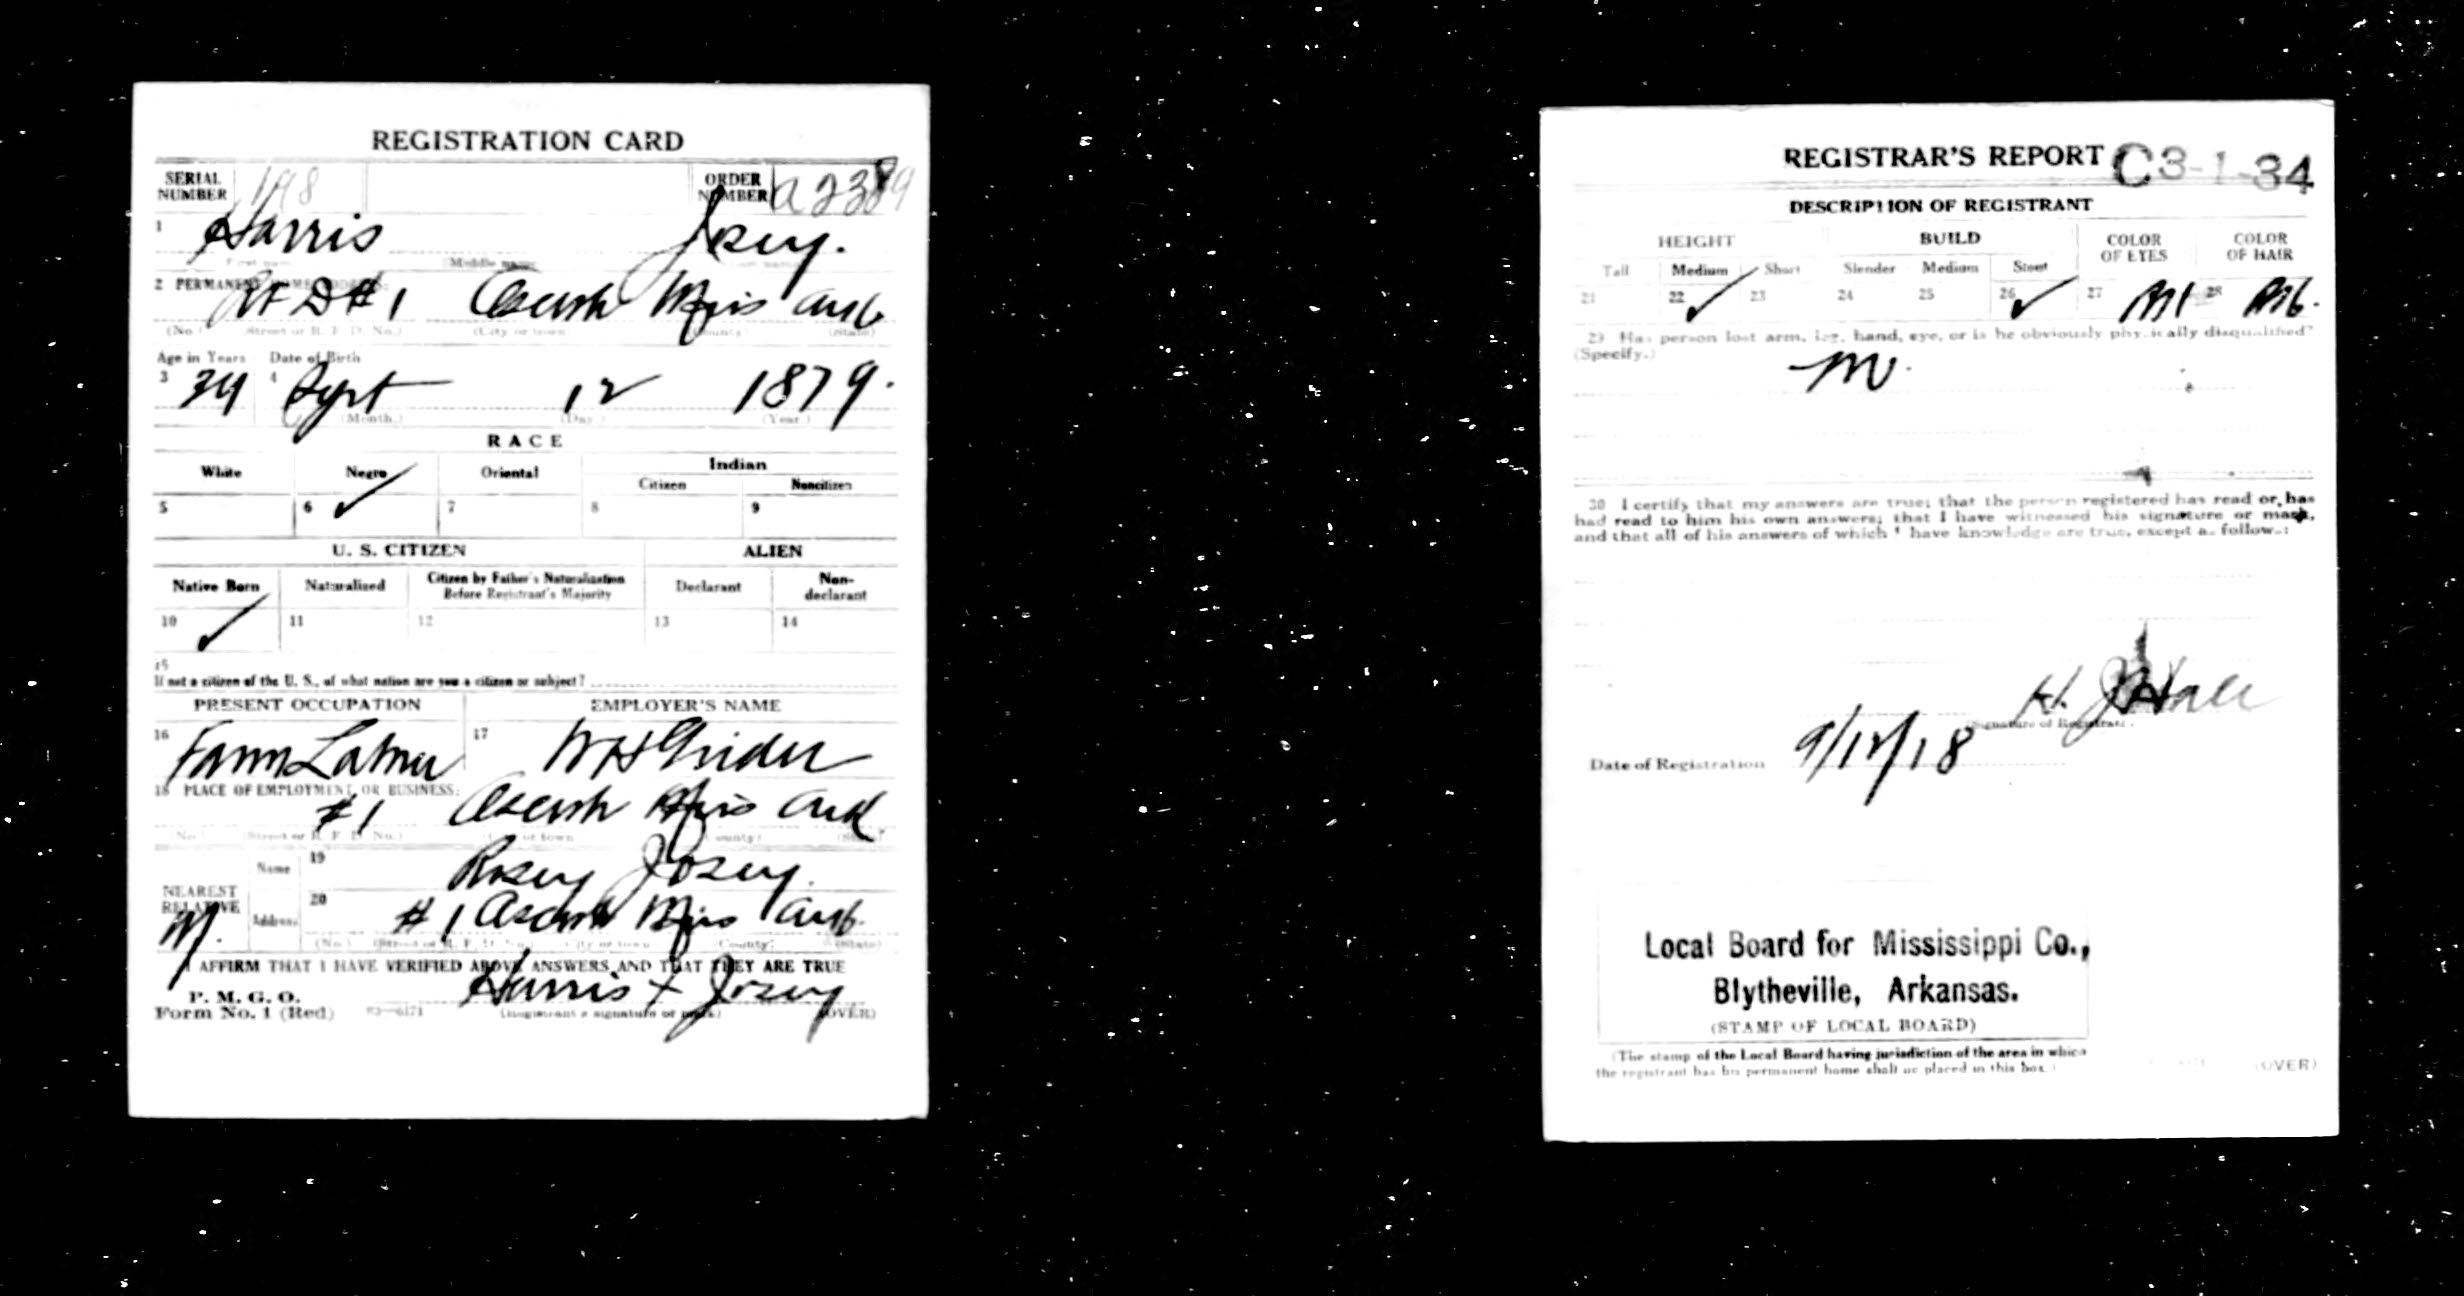 REGISTRATION CARD
SERIAL NUMBER 198 ORDER NUMBER a2389
1 Harris Josey.
First name Middle name Last name
2 PERMANENT HOME ADDRESS:
RFD #1 Miss Ark
(No.) (Street or R. F. D. No.) (City or town) (County) (State)
Age in Years Date of Birth
3 39 4 Sept 12 1879.
(Month.) (Day.) (Year.)
RACE
White Negro ✓ Oriental Indian
Citizen Noncitizen
5 6 7 8 9
U. S. CITIZEN ALIEN
Native Born Naturalized Citizen by Father's Naturalization Before Registrant's Majority Declarant Non-declarant
10 ✓ 11 12 13 14
15
If not a citizen of the U. S., of what nation are you a citizen or subject?
PRESENT OCCUPATION EMPLOYER'S NAME
16 Farm Labour 17 W H Grider
18 PLACE OF EMPLOYMENT OR BUSINESS:
#1 Miss Ark.
(No.) (Street or R. F. D. No.) (City or town) (County) (State)
NEAREST RELATIVE Name 19 Rosey Josey.
Address 20 #1 Miss Ark.
(No.) (Street or R. F. D. No.) (City or town) (County) (State)
I AFFIRM THAT I HAVE VERIFIED ABOVE ANSWERS AND THAT THEY ARE TRUE
P. M. G. O.
Form No. 1 (Red) 03—6171 Harris x Josey
(Registrant's signature or mark) (OVER)
REGISTRAR'S REPORT C3-1-34
DESCRIPTION OF REGISTRANT
HEIGHT BUILD COLOR OF EYES COLOR OF HAIR
Tall Medium Short Slender Medium Stout
21 22 ✓ 23 24 25 26 ✓ 27 28
29 Has person lost arm, leg, hand, eye, or is he obviously physically disqualified?
(Specify.)
no.
30 I certify that my answers are true; that the person registered has read or has
had read to him his own answers; that I have witnessed his signature or mark,
and that all of his answers of which I have knowledge are true, except as follows:
H. J. Hall
(Signature of Registrar)
Date of Registration 9/12/18
Local Board for Mississippi Co.,
Blytheville, Arkansas.
(STAMP OF LOCAL BOARD)
(The stamp of the Local Board having jurisdiction of the area in which
the registrant has his permanent home shall be placed in this box.)
(OVER)